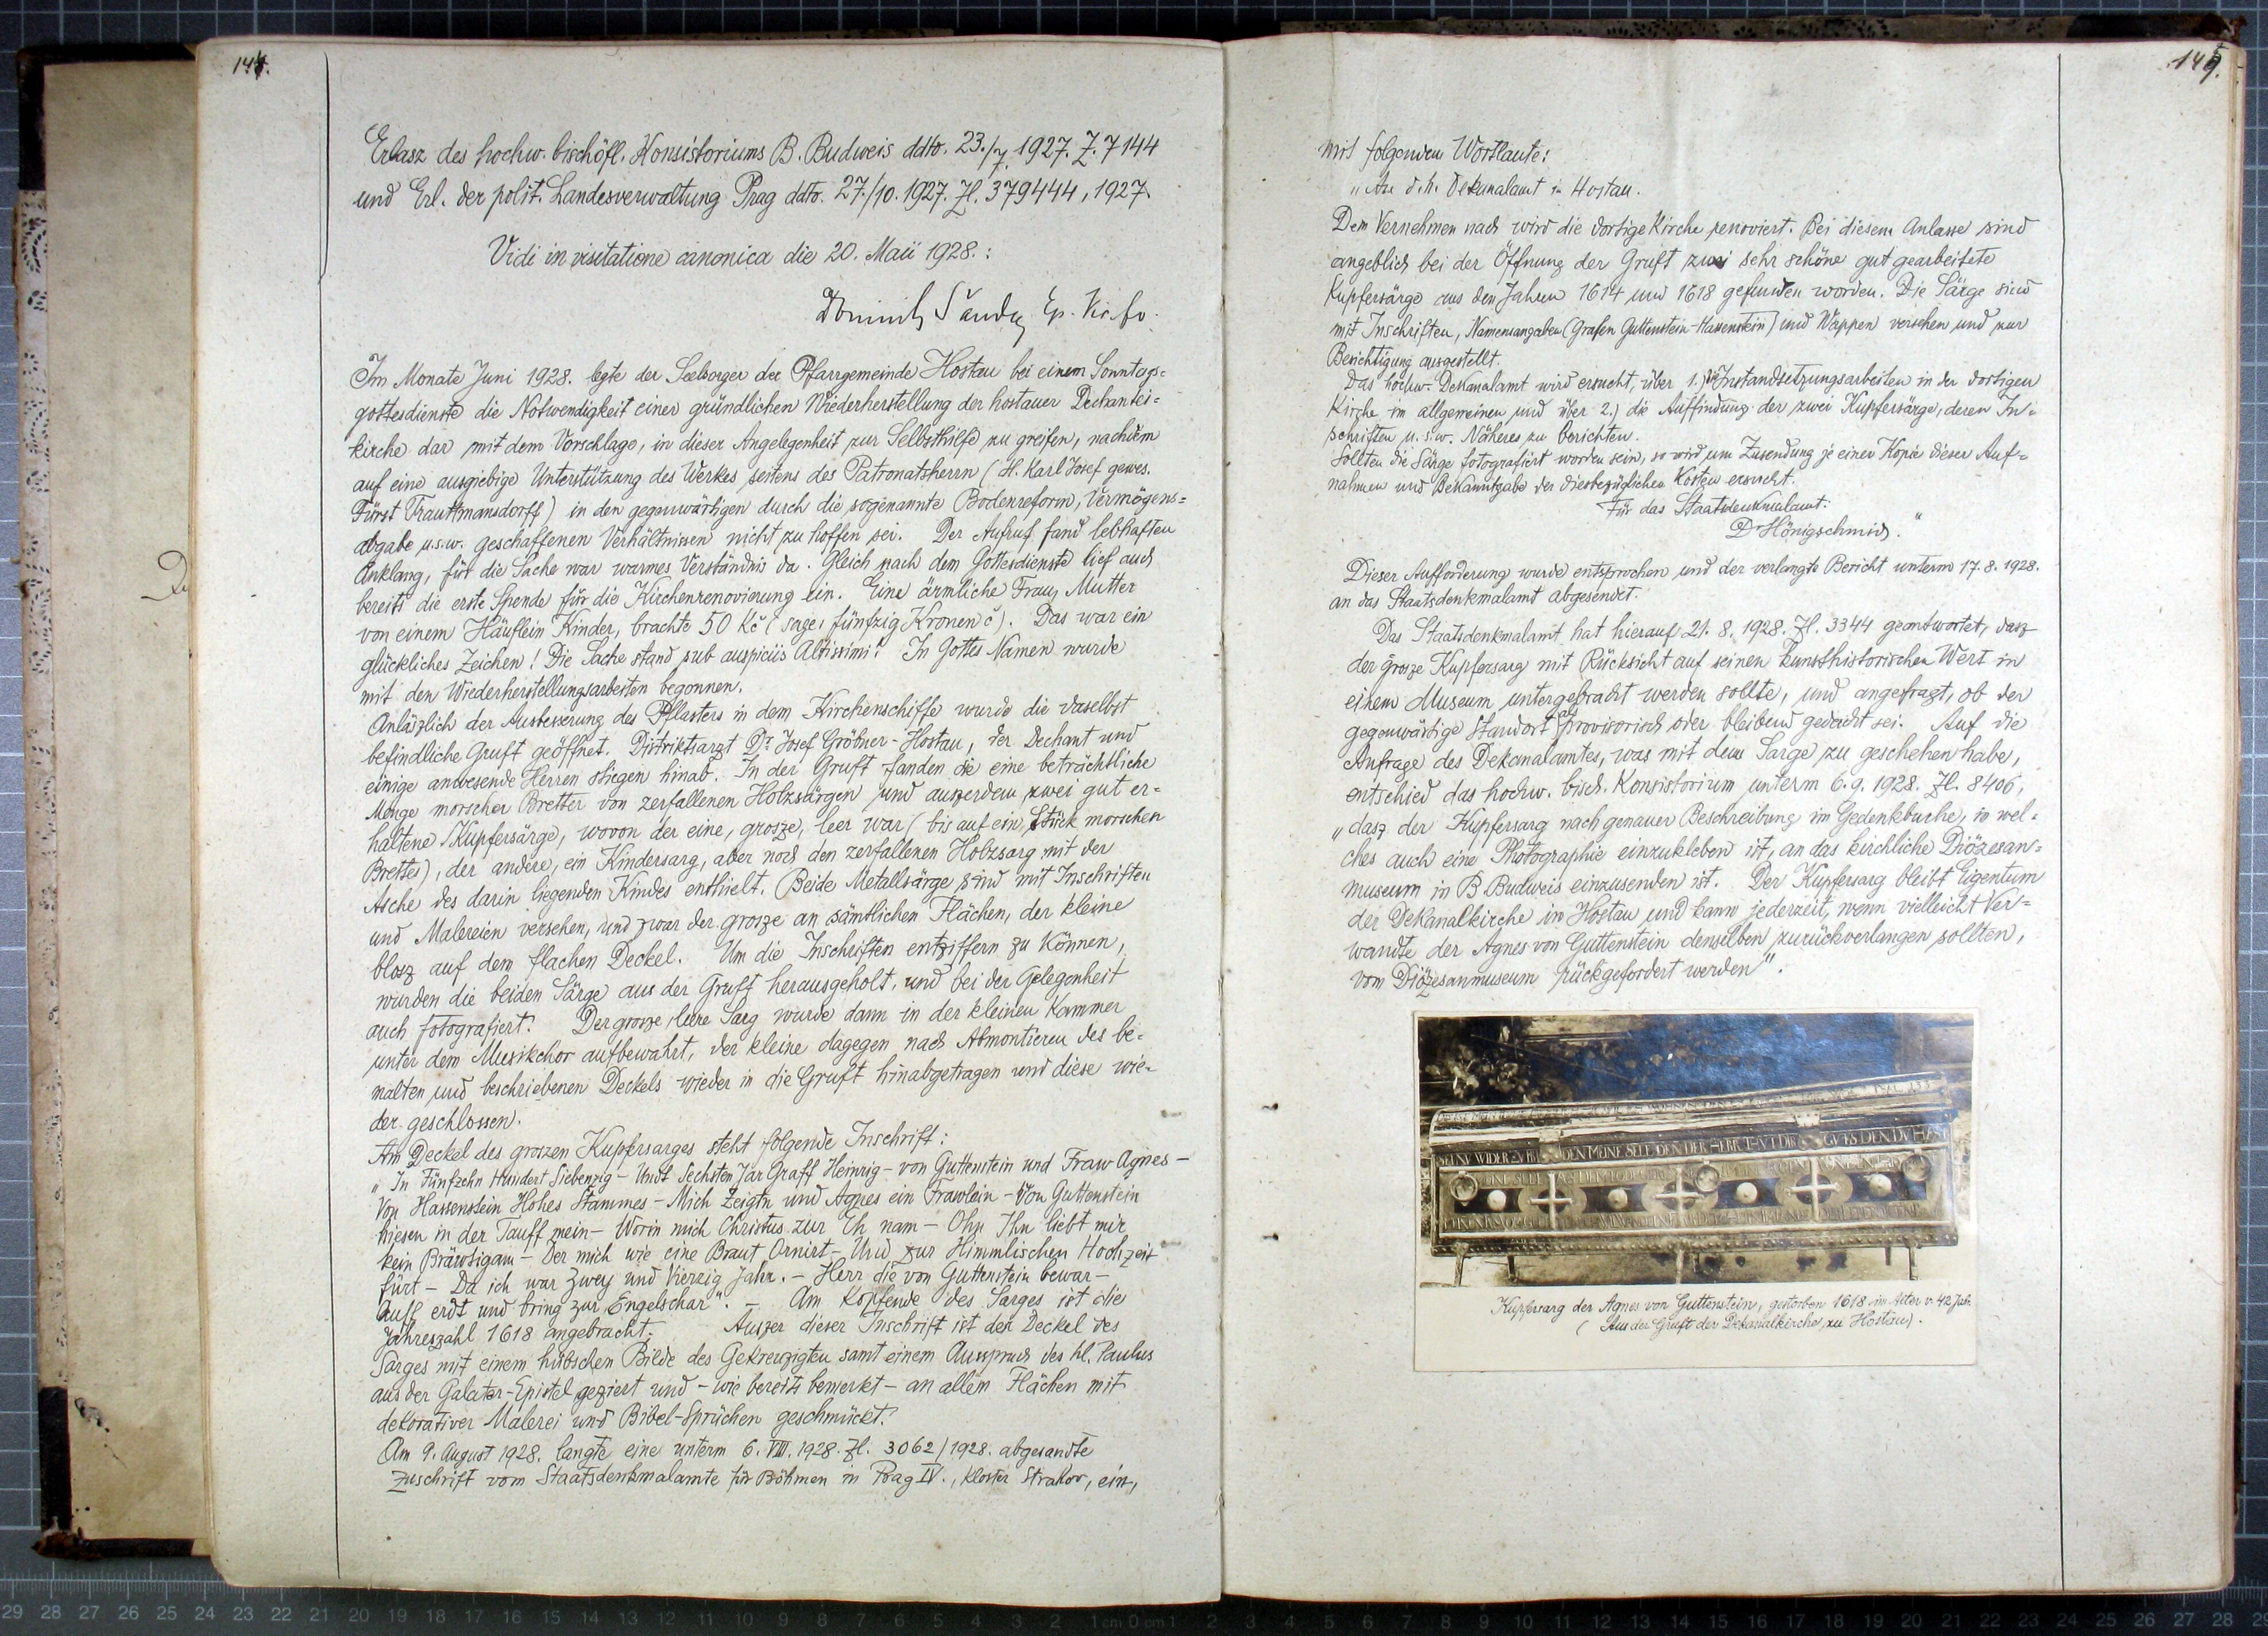 144.
Erlasz des hochw. bischöfl. Konsistoriums B. Budweis ddto. 23./7. 1927. Z. 7144
und Erl. der polit. Landesverwaltung Prag ddto. 27./10. 1927. Zl. 379444, 1927.
Vidi in visitatione canonica die 20. Maii 1928.:
Im Monate Juni 1928. legte der Seelsorger der Pfarrgemeinde Hostau bei einem Sonntags=
gottesdienste die Notwendigkeit einer gründlichen Wiederherstellung der hostauer Dechantei=
kirche dar mit dem Vorschlage, in dieser Angelegenheit zur Selbsthilfe zu greifen, nachdem
auf eine ausgiebige Unterstützung des Werkes seitens des Patronatsherrn (H. Karl Josef gewes.
Fürst Trauttmansdorff) in den gegenwärtigen durch die sogenannte Bodenreform, Vermögens=
abgabe u.s.w. geschaffenen Verhältnissen nicht zu hoffen sei. Der Aufruf fand lebhaften
Anklang, für die Sache war warmes Verständnis da. Gleich nach dem Gottesdienste lief auch
bereits die erste Spende für die Kirchenrenovierung ein. Eine ärmliche Frau, Mutter
von einem Häuflein Kinder, brachte 50 Kč (sage: fünfzig Kronen č). Das war ein
glückliches Zeichen! Die Sache stand sub auspiciis Altissimi! In Gottes Namen wurde
mit den Wiederherstellungsarbeiten begonnen.
Anläszlich der Ausbesserung des Pflasters in dem Kirchenschiffe wurde die daselbst
befindliche Gruft geöffnet. Distriktsarzt Dr. Josef Gröbner-Hostau, der Dechant und
einige anwesende Herren stiegen hinab. In der Gruft fanden sie eine beträchtliche
Menge morscher Bretter von zerfallenen Holzsärgen und auszerdem zwei gut er=
haltene Kupfersärge, wovon der eine, grosze, leer war (bis auf ein Stück morschen
Brettes), der andere, ein Kindersarg, aber noch den zerfallenen Holzsarg mit der
Asche des darin liegenden Kindes enthielt. Beide Metallsärge sind mit Inschriften
und Malereien versehen, und zwar der grosze an sämtlichen Flächen, der kleine
blosz auf dem flachen Deckel. Um die Inschriften entziffern zu können,
wurden die beiden Särge aus der Gruft herausgeholt, und bei der Gelegenheit
auch fotografiert. Der grosze, leere Sarg wurde dann in der kleinen Kammer
unter dem Musikchor aufbewahrt, der kleine dagegen nach Abmontieren des be=
malten und beschriebenen Deckels wieder in die Gruft hinabgetragen und diese wie=
der geschlossen.
Am Deckel des groszen Kupfersarges steht folgende Inschrift:
"In Fünfzehn Hundert Siebenzig – Undt Sechsten Jar Graff Heinrig – von Guttenstein und Fraw Agnes –
Von Hassenstein Hohes Stammes – Mich Zeigtn und Agnes ein Frawlein – Von Guttenstein
hiesen in der Tauff mein – Worin mich Christus zur Eh nam – Ohn Ihn liebt mir
kein Bräwtigam – Der mich wie eine Braut Ornirt – Und zur Himmlischen Hochzeit
fürt – Da ich war Zwey und Vierzig Jahr. – Herr die von Guttenstein bewar –
Auff erdt und bring zur Engelschar". – Am Kopfende des Sarges ist die
Jahreszahl 1618 angebracht. Auszer dieser Inschrift ist der Deckel des
Sarges mit einem hübschen Bilde des Gekreuzigten samt einem Ausspruch des hl. Paulus
aus der Galater-Epistel geziert und – wie bereits bemerkt – an allen Flächen mit
dekorativer Malerei und Bibel-Sprüchen geschmückt.
Am 9. August 1928. langte eine unterm 6. VIII. 1928. Zl. 3062/1928. abgesandte
Zuschrift vom Staatsdenkmalamte für Böhmen in Prag IV., Kloster Strahov, ein,
mit folgenden Wortlaute:
"An d. h. Dekanalamt in Hostau.
Dem Vernehmen nach wird die dortige Kirche renoviert. Bei diesem Anlasse sind
angeblich bei der Öffnung der Gruft zwei sehr schöne gut gearbeitete
Kupfersärge aus den Jahren 1614 und 1618 gefunden worden. Die Särge sind
mit Inschriften, Namensangaben (Grafen Guttenstein-Hassenstein) und Wappen versehen und zur
Besichtigung ausgestellt.
Das hochw. Dekanalamt wird ersucht, über 1.) die Instandsetzungsarbeiten in der dortigen
Kirche im allgemeinen und über 2.) die Auffindung der zwei Kupfersärge, deren In=
schriften u.s.w. Näheres zu berichten.
Sollten die Särge fotografiert worden sein, so wird um Zusendung je einer Kopie dieser Auf=
nahmen und Bekanntgabe der diesbezüglichen Kosten ersucht.
Für das Staatsdenkmalamt:
Dr Hönigschmid."
Dieser Aufforderung wurde entsprochen und der verlangte Bericht unterm 17. 8. 1928.
an das Staatsdenkmalamt abgesendet.
Das Staatsdenkmalamt hat hierauf 21. 8. 1928. Zl. 3344 geantwortet, dasz
der grosze Kupfersarg mit Rücksicht auf seinen kunsthistorischen Wert in
einem Museum untergebracht werden sollte, und angefragt, ob der
gegenwärtige Standort als provisorisch oder bleibend gedacht sei. Auf die
Anfrage des Dekanalamtes, was mit dem Sarge zu geschehen habe,
entschied das hochw. bisch. Konsistorium unterm 6. 9. 1928. Zl. 8406,
"dasz der Kupfersarg nach genauer Beschreibung im Gedenkbuche, in wel=
ches auch eine Photographie einzukleben ist, an das kirchliche Diözesan=
museum in B. Budweis einzusenden ist. Der Kupfersarg bleibt Eigentum
der Dekanalkirche in Hostau und kann jederzeit, wenn vielleicht Ver=
wandte der Agnes von Guttenstein denselben zurückverlangen sollten,
vom Diözesanmuseum rückgefordert werden".
SEI NV WIDER ZV DEN MEINE SELE DEN DER HERR THVT DIR GVTS DEN DV HAST
Kupfersarg der Agnes von Guttenstein, gestorben 1618 im Alter v. 42 Jah.
(Aus der Gruft der Dekanalkirche zu Hostau).